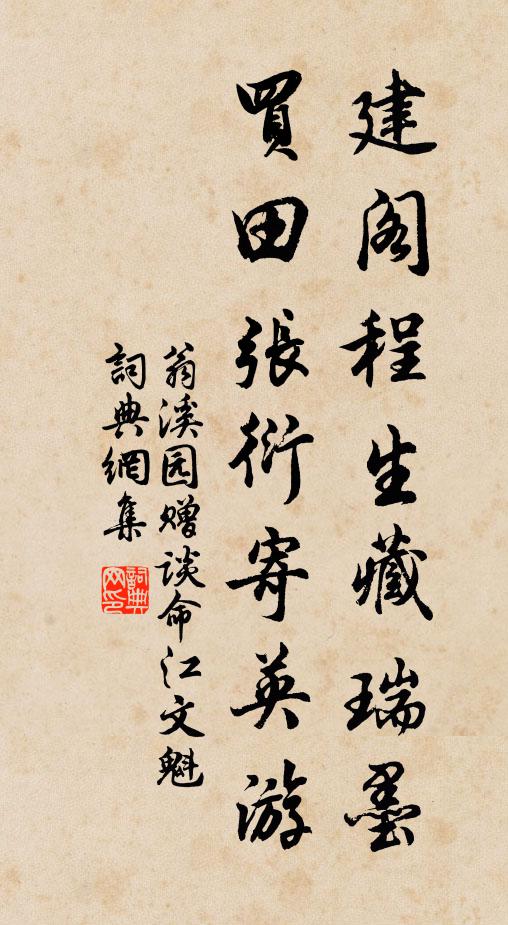 建阁程生藏瑞墨
買田張衍寄英游
翁溪园赠谈命江文魁
詞典網集
詞典網印